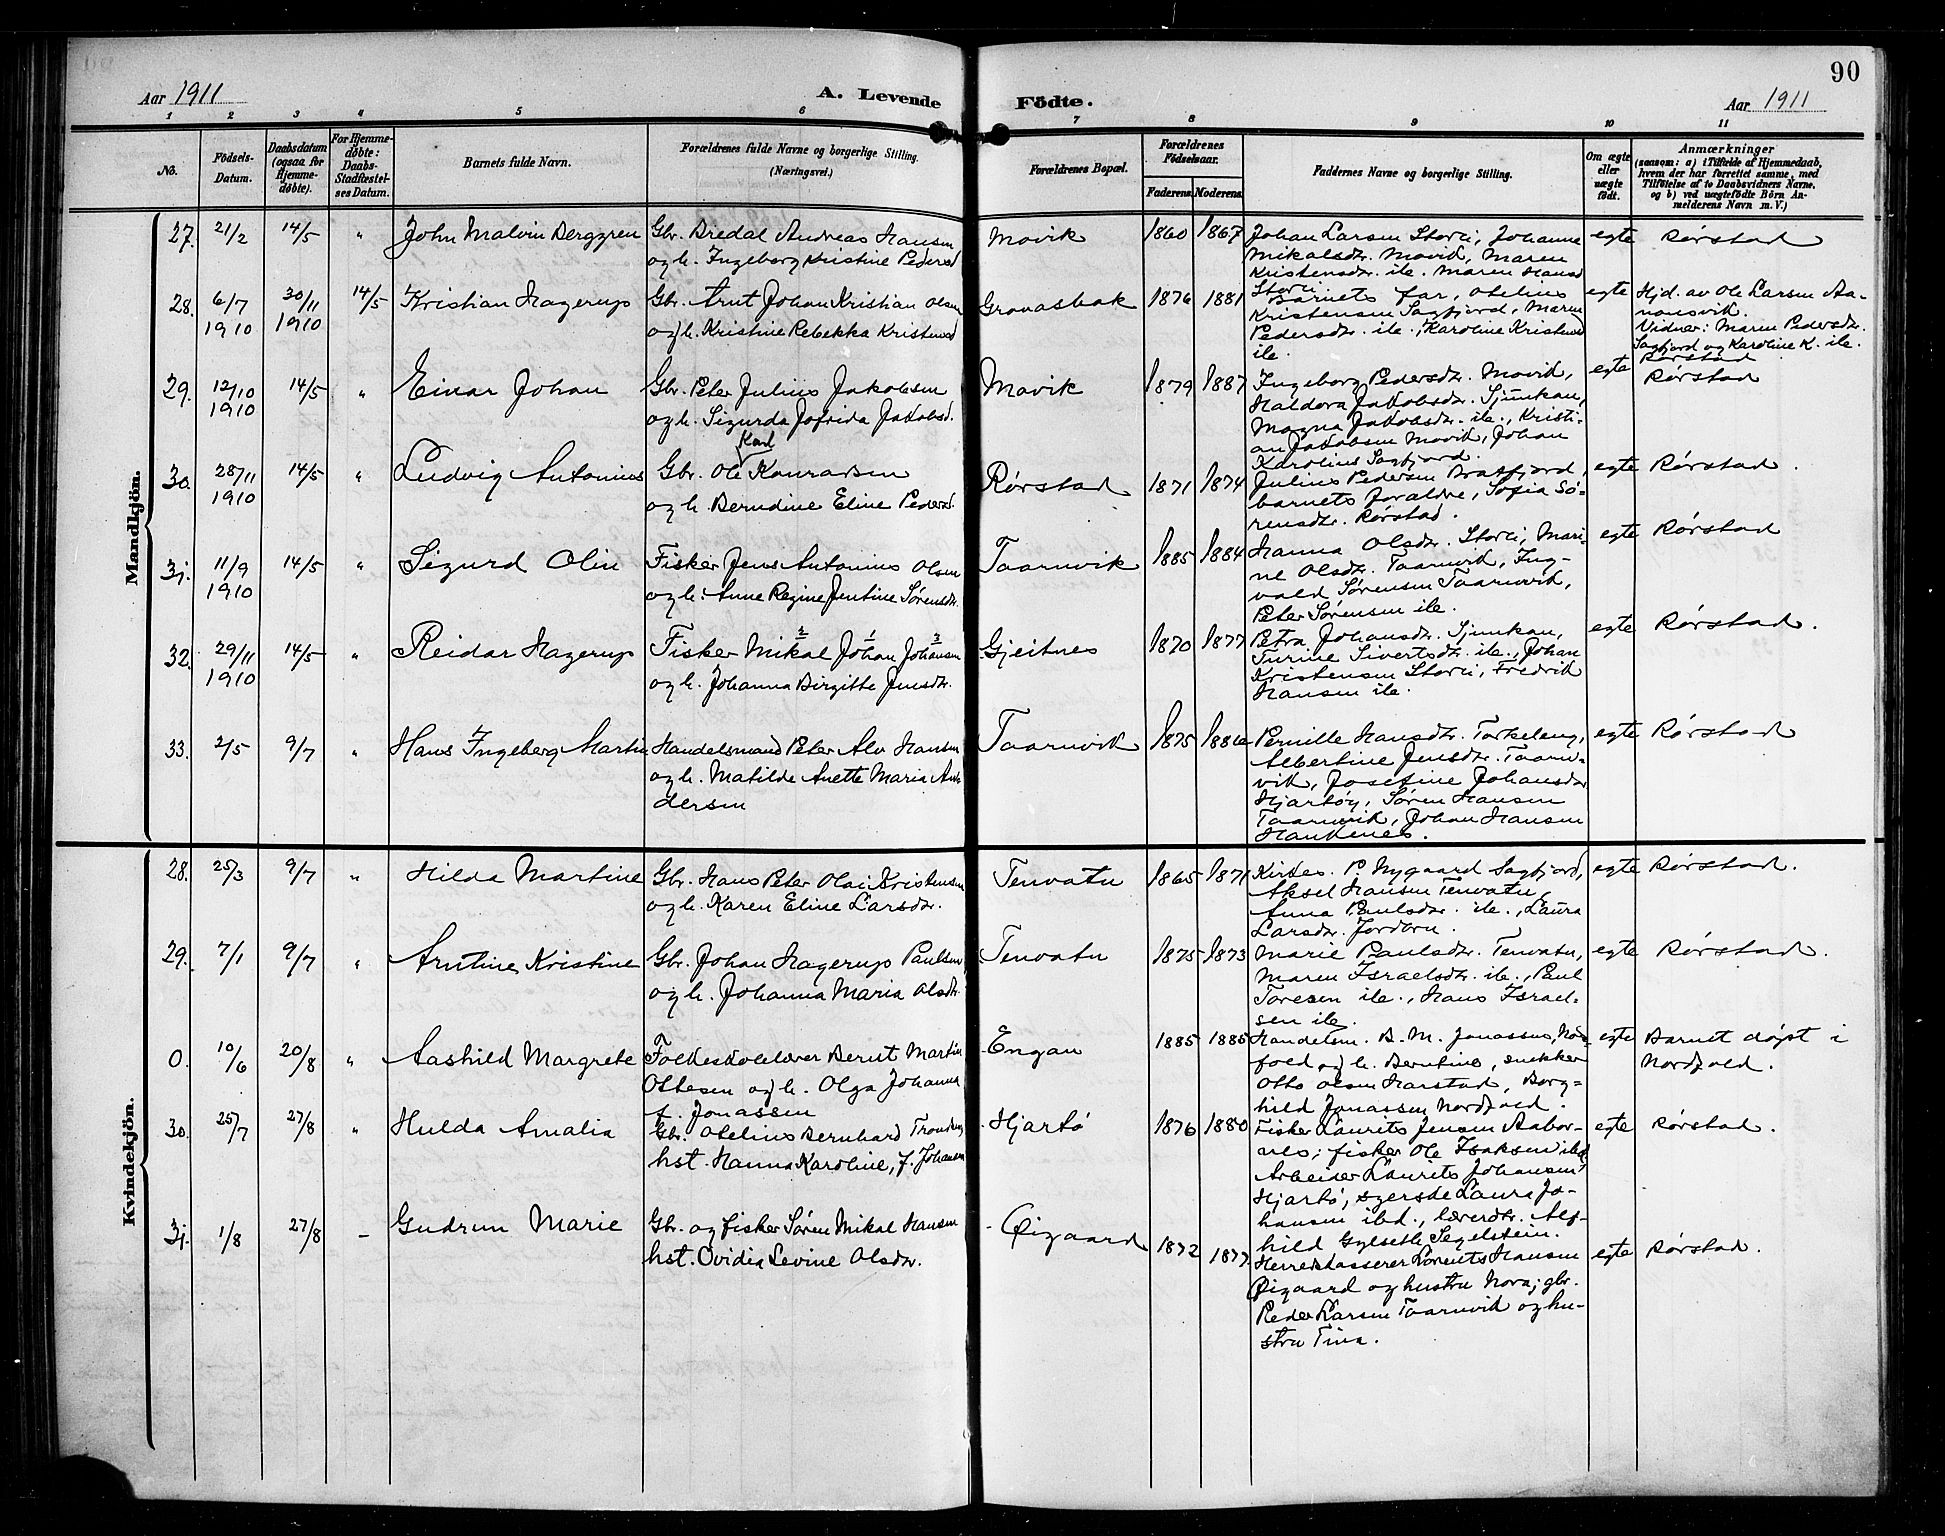 90
Aar 1911
A. Levende
Födte.
Aar 1911
1 2 3 4 5 6 7 8 9 10 11
No.
Födsels-
Datum.
Daabsdatum
(ogsaa for
Hjemme-
döbte).
For Hjemme-
döbte:
Daabs-
Stadfæstel-
ses Datum.
Barnets fulde Navn.
Forældrenes fulde Navne og borgerlige Stilling.
(Næringsvei.)
Forældrenes Bopæl.
Forældrenes
Födselsaar.
Faderens. Moderens.
Faddernes Navne og borgerlige Stilling.
Om ægte
eller
uægte
födt.
Anmærkninger
(saasom: a) i Tilfælde af Hjemmedaab,
hvem der har forrettet samme, med
Tilföielse af to Daabsvidners Navne,
og b) ved uægtefödte Börn An-
melderens Navn m. V.)
Mandkjön.
27. 21/2 14/5 " John Malvin Berggren
Gbr. Bredal Andreas Hansen
og h. Ingeborg Kristine Pedersd
Movik 1860 1867
Johan Larsen Storli, Johanne
Mikalsdr. Movik, Maren
Kristensdr. ile. Maren Hansd
Storli
egte Rørstad
28. 6/7 1910 30/11 1910 14/5 Kristian Hagerup
Gbr. Arnt Johan Kristian Olsen
og h. Kristine Rebekka Kristensd
Gronasbak 1876 1881
Barnets far, Otelius
Kristensen Sagfjord, Maren
Pedersdr. ile., Karoline Kristensd
ile.
egte Hjd. av Ole Larsen Aa-
nonsvik.
Vidner: Maren Pedersdr.
Sagfjord og Karoline K. ile.
Rørstad
29. 12/10 1910 14/5 " Einar Johan
Gbr. Peter Julius Jakobsen
og h. Sigurda Jofrida Jakobsd.
Movik 1879 1887
Ingeborg Pedersdr. Movik,
Haldora Jakobsdr. Sjunkan,
Magna Jakobsdr. ile., Kristi-
an Jakobsen Movik, Johan
Karolius Sagfjord.
egte Rørstad
30. 28/11 1910 14/5 " Ludvig Antonius
Karl
Gbr. Ole Konradsen
og h. Berndine Eline Pedersd.
Rørstad 1871 1874
Julius Pedersen Bratfjord,
barnets forældre, Sofia Sö-
rensdr. Rørstad.
egte Rørstad.
31. 11/9 1910 14/5 " Sigurd Olin
Fisker Jens Antonius Olsen
og h. Anne Regine Jentine Sørensdr.
Taarnvik 1885 1884
Hanna Olsdr. Storli, Mari-
ne Olsdr. Taarnvik, Ing-
vald Sørensen Taarnvik,
Peter Sørensen ile.
egte Rørstad
32. 29/11 1910 14/5 " Reidar Hagerup
2 1 3
Fisker Mikal Johan Johansen
og h. Johanna Birgitte Jensdr.
Gjeitnes 1870 1877
Petra Johansdr. Sjunkan,
Surine Sivertsdr. ile., Johan
Kristensen Storli, Fredrik
Hansen ile.
egte Rørstad.
33. 2/5 9/7 " Hans Ingeberg Martin
Handelsmand Peter Alv Hansen
og h. Matilde Anette Maria An-
dersen
Taarnvik 1875 1886
Pernille Hansdr. Torkeleng,
Albertine Jensdr. Taarn-
vik, Josefine Johansdr
Hjartöy, Sören Hansen
Taarnvik, Johan Hansen
Haukenes.
egte Rørstad
Kvindekjön.
28. 25/3 9/7 " Hilda Martine
Gbr. Hans Peter Olai Kristensen
og h. Karen Eline Larsdr.
Tenvatn 1865 1871
Kirkes. P. Nygaard Sagfjord,
Aksel Hansen Tenvatn,
Anna Paulsdr. ile., Laura
Larsdr. Jordbru.
egte Rørstad.
29. 7/1 9/7 " Arntine Kristine
Gbr. Johan Hagerup Paulsen
og h. Johanna Maria Olsdr.
Tenvatn 1875 1873
Marie Paulsdr. Tenvatn,
Maren Israelsdr. ile., Paul
Toresen ile., Hans Israel-
sen ile.
egte Rørstad.
0. 10/6 20/8 " Aashild Margrete
Folkeskolelærer Bernt Martin
Ottesen og h. Olga Johanna
f. Jonassen
Engan 1885 1885
Handelsm. B. M. Jonassen, Nor-
fold og h. Berntine, snekker
Otto Olsen Harstad, Borg-
hild Jonassen Nordfold.
egte Barnet døpt i
Nordfold.
30. 25/7 27/8 " Hulda Amalia
Gbr. Otelius Bernhard Trondsen
hst. Hanna Karoline, f. Johansen
Hjartö 1876 1880
Fisker Laurits Jensen Aabor-
nes; fisker Ole Isaksen ibd.
Arbeider Laurits Johansen
Hjartö, syerske Laura Jo-
hansen ibd., lærerdr. Alf-
hild Gylseth Segelstein.
egte Rørstad.
31. 1/8 27/8 - Gudrun Marie
Gbr. og fisker Sören Mikal Hansen
hst. Ovidia Levine Olsdr.
Øigaard 1872 1877
Herredskasserer Lorents Hansen
Øigaard og hustru Nora; gbr.
Peder Larsen Taarnvik og hu-
stru Tina.
egte Rørstad.